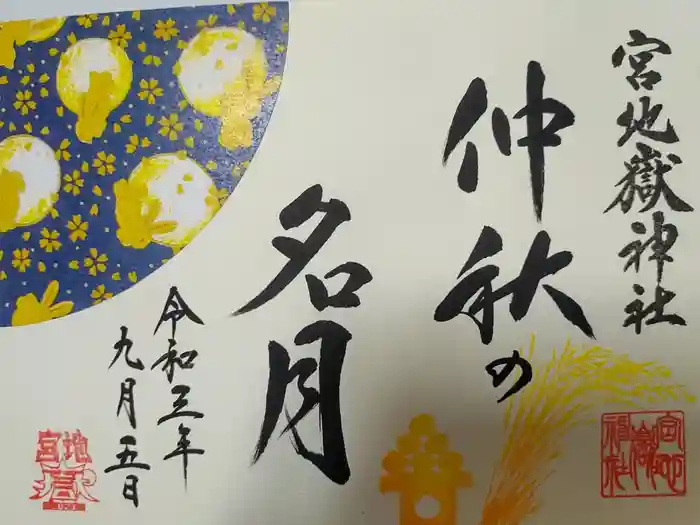 宮地嶽神社
仲秋の
名月
令和三年
九月五日
宮地嶽神社
宮地